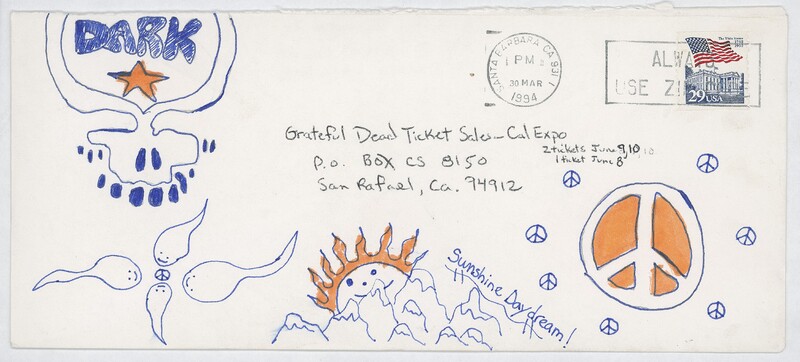 DARK
SANTA BARBARA CA 931
1 PM
30 MAR
1994
ALWAYS
USE ZI
29 USA
Grateful Dead Ticket Sales - Cal Expo
2 tickets June 9,10
1 ticket June 8
P.O. BOX CS 8150
San Rafael, Ca. 94912
Sunshine Daydream!